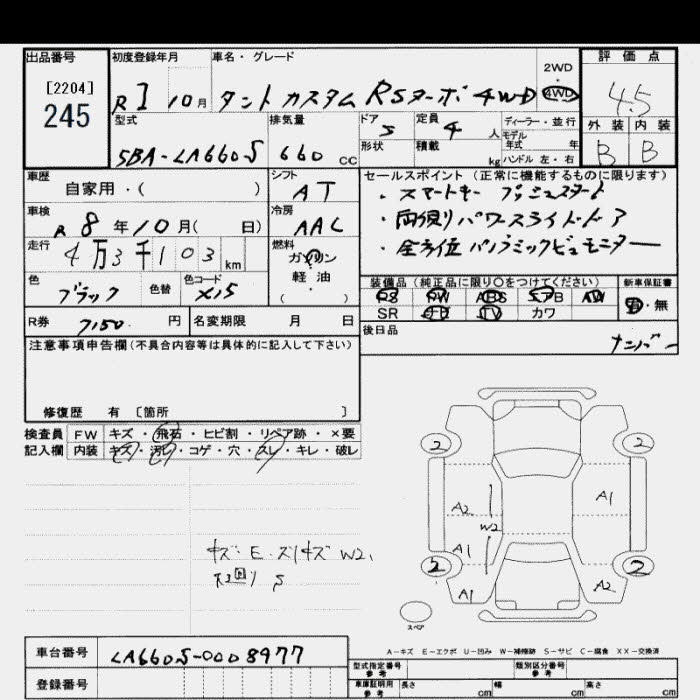 出品番号 初度登録年月 車名・グレード 2WD 評価点
[2204] ・
245 R1 10月 タント カスタム RSターボ 4WD 4WD 4.5
型式 排気量 ドア 定員 ディーラー・並行 外装 内装
5BA-LA660S 660 CC 5 4人 モデル年式 年 B B
形状 積載 kg ハンドル 左・右
車歴 シフト セールスポイント(正常に機能するものに限ります)
自家用・( ) AT ・スマートキー プッシュスタート
車検 冷房 ・両側パワースライドドア
R8年10月( 日) AAC ・全方位パノラミックビューモニター
走行 燃料
4万3千103km ガソリン
軽油
( )
色 色替 色コード 装備品(純正品に限り〇をつけてください) 新車保証書
ブラック X15 PS PW ABS エアB AW 有・無
SR ナビ TV カワ
R券 7150円 名変期限 月 日 後日品
ナンバー
注意事項申告欄(不具合内容等は具体的に記入して下さい)
修復歴 有 [箇所 ]
検査員 FW キズ・飛石・ヒビ割・リペア跡・×要
記入欄 内装 キズ・汚レ・コゲ・穴・スレ・キレ・破レ
2 2
A2 A1
W2
キズ・E・ズリキズ W2、
A1
2 2
S
A1 A2
スペア
A-キズ E-エクボ U-凹み W-補修跡 S-サビ C-腐食 XX-交換済
車台番号 LA660S-0008977 型式指定番号 参考 類別区分番号 参考
登録番号 車庫証明用 参考 長さ cm 幅 cm 高さ cm